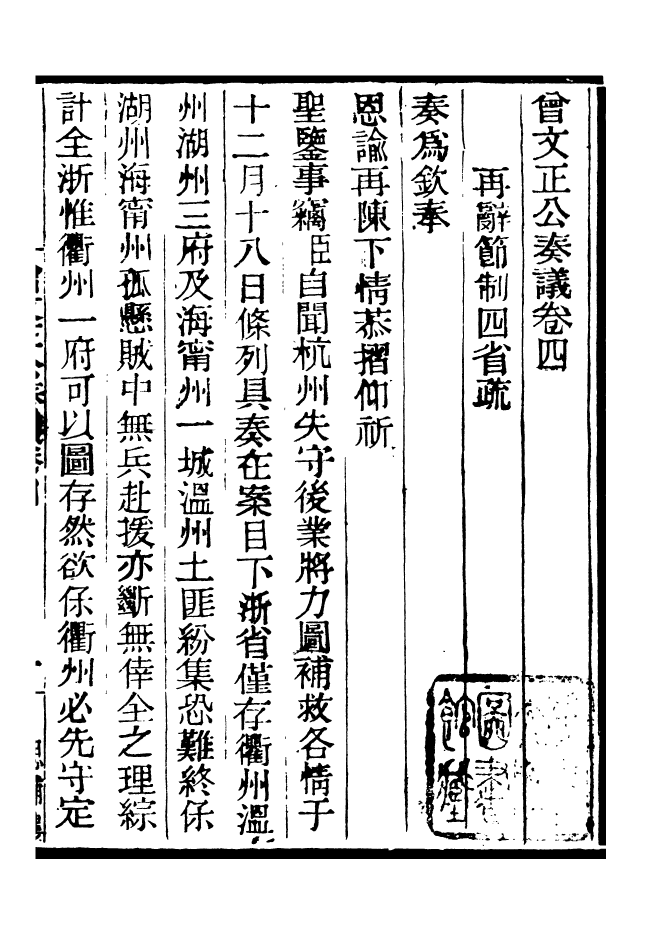 曾文正公奏議卷四
再辭節制四省疏
奏爲欽奉
恩諭再陳下情恭摺仰祈
聖鑒事竊臣自聞杭州失守後業將力圖補救各情于
十二月十八日條列具奏在案目下浙省僅存衢州溫
州湖州三府及海甯州一城溫州土匪紛集恐難終保
湖州海甯州孤懸賊中無兵赴援亦斷無倖全之理綜
計全浙惟衢州一府可以圖存然欲保衢州必先守定